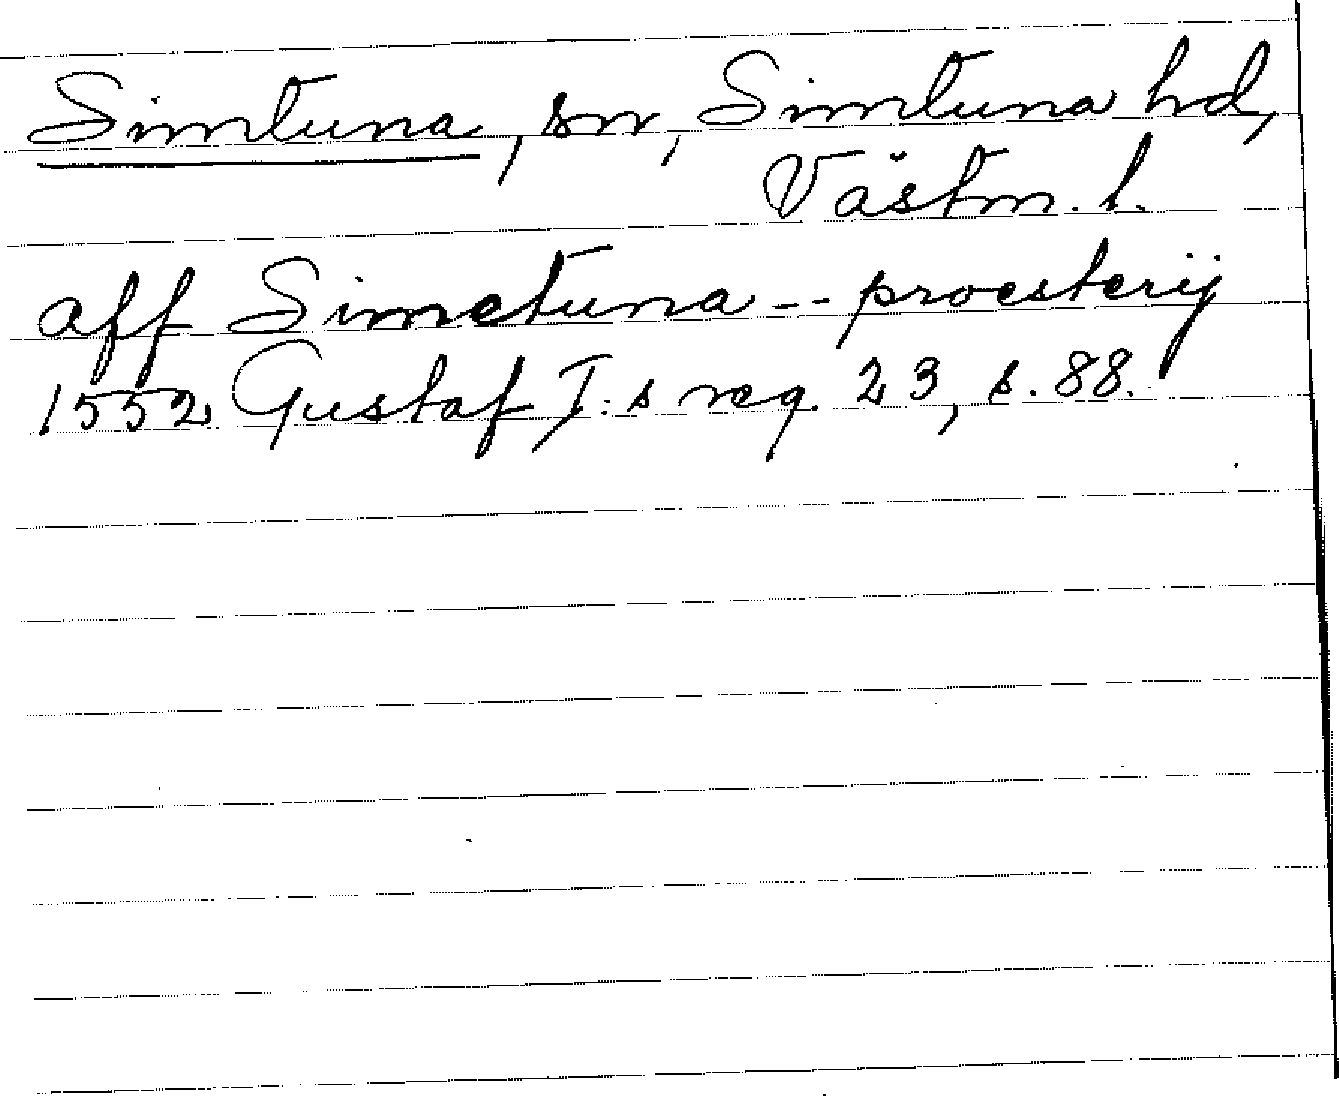 Simtuna, sn, Simtuna hd,
Västm. l.
aff Simetuna -- proesterij
1552 Gustaf I:s reg. 23, s. 88.